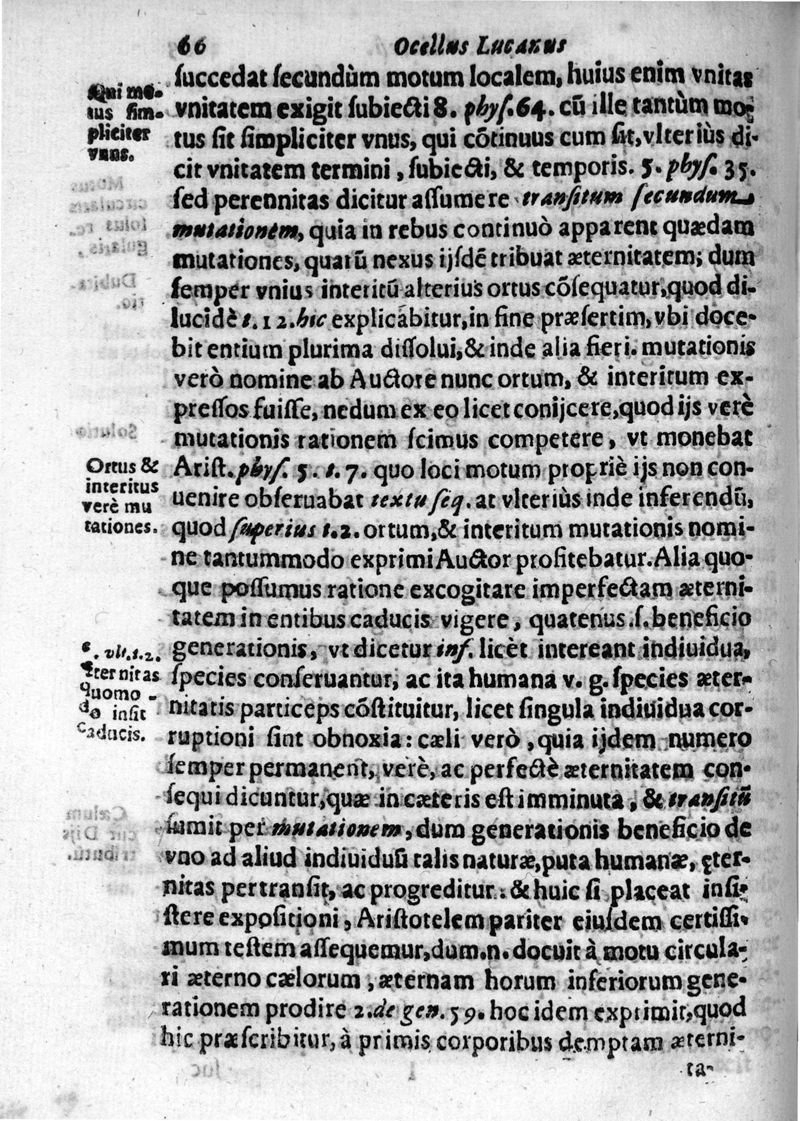 60
Ocellus Lucanus
ſuccedat ſecundùm motum localem, huius enim vnitas
vnitatem exigit ſubiecti 8. phyſ. 64. cū ille tantùm mo-
tus ſit ſimpliciter vnus, qui cōtinuus cum ſit, vlteriùs di-
cit vnitatem termini, ſubiecti, & temporis. 5. phyſ. 35.
ſed perennitas dicitur aſſumere tranſitum ſecundum
mutationem, quia in rebus continuò apparent quædam
mutationes, quarū nexus ijſdē tribuat æternitatem; dum
ſemper vnius interitū alterius ortus cōſequatur, quod di-
lucidè t. 12. hic explicabitur, in fine præſertim, vbi doce-
bit entium plurima diſſolui, & inde alia fieri. mutationis
verò nomine ab Auctore nunc ortum, & interitum ex-
preſſos fuiſſe, nedum ex eo licet conijcere, quod ijs verè
mutationis rationem ſcimus competere, vt monebat
Ariſt. phyſ. 5. t. 7. quo loci motum propriè ijs non con-
uenire obſeruabat textu ſeq. at vlteriùs inde inferendū,
quod ſuperius t. 2. ortum, & interitum mutationis nomi-
ne tantummodo exprimi Auctor profitebatur. Alia quo-
que poſſumus ratione excogitare imperfectam æterni-
tatem in entibus caducis vigere, quatenus .ſ. beneficio
generationis, vt dicetur inf. licèt intereant indiuidua,
ſpecies conſeruantur, ac ita humana v. g. ſpecies æter-
nitatis particeps cōſtituitur, licet ſingula indiuidua cor-
ruptioni ſint obnoxia: cæli verò, quia ijdem numero
ſemper permanent, verè, ac perfectè æternitatem con-
ſequi dicuntur, quæ in cæteris eſt imminuta, & tranſitū
ſumit per mutationem, dum generationis beneficio de
vno ad aliud indiuiduū talis naturæ, puta humanæ, ęter-
nitas pertranſit, ac progreditur: & huic ſi placeat inſi-
ſtere expoſitioni, Ariſtotelem pariter eiuſdem certiſſi-
mum teſtem aſſequemur, dum .n. docuit à motu circula-
ri æterno cælorum, æternam horum inferiorum gene-
rationem prodire 2. de gen. 59. hoc idem exprimit, quod
hic præſcribitur, à primis corporibus demptam æterni-
ta-
Qui mo-
tus ſim-
pliciter
vnus.
Ortus &
interitus
verè mu
tationes.
vlt. t. 2.
ęternitas
quomo-
do inſit
caducis.